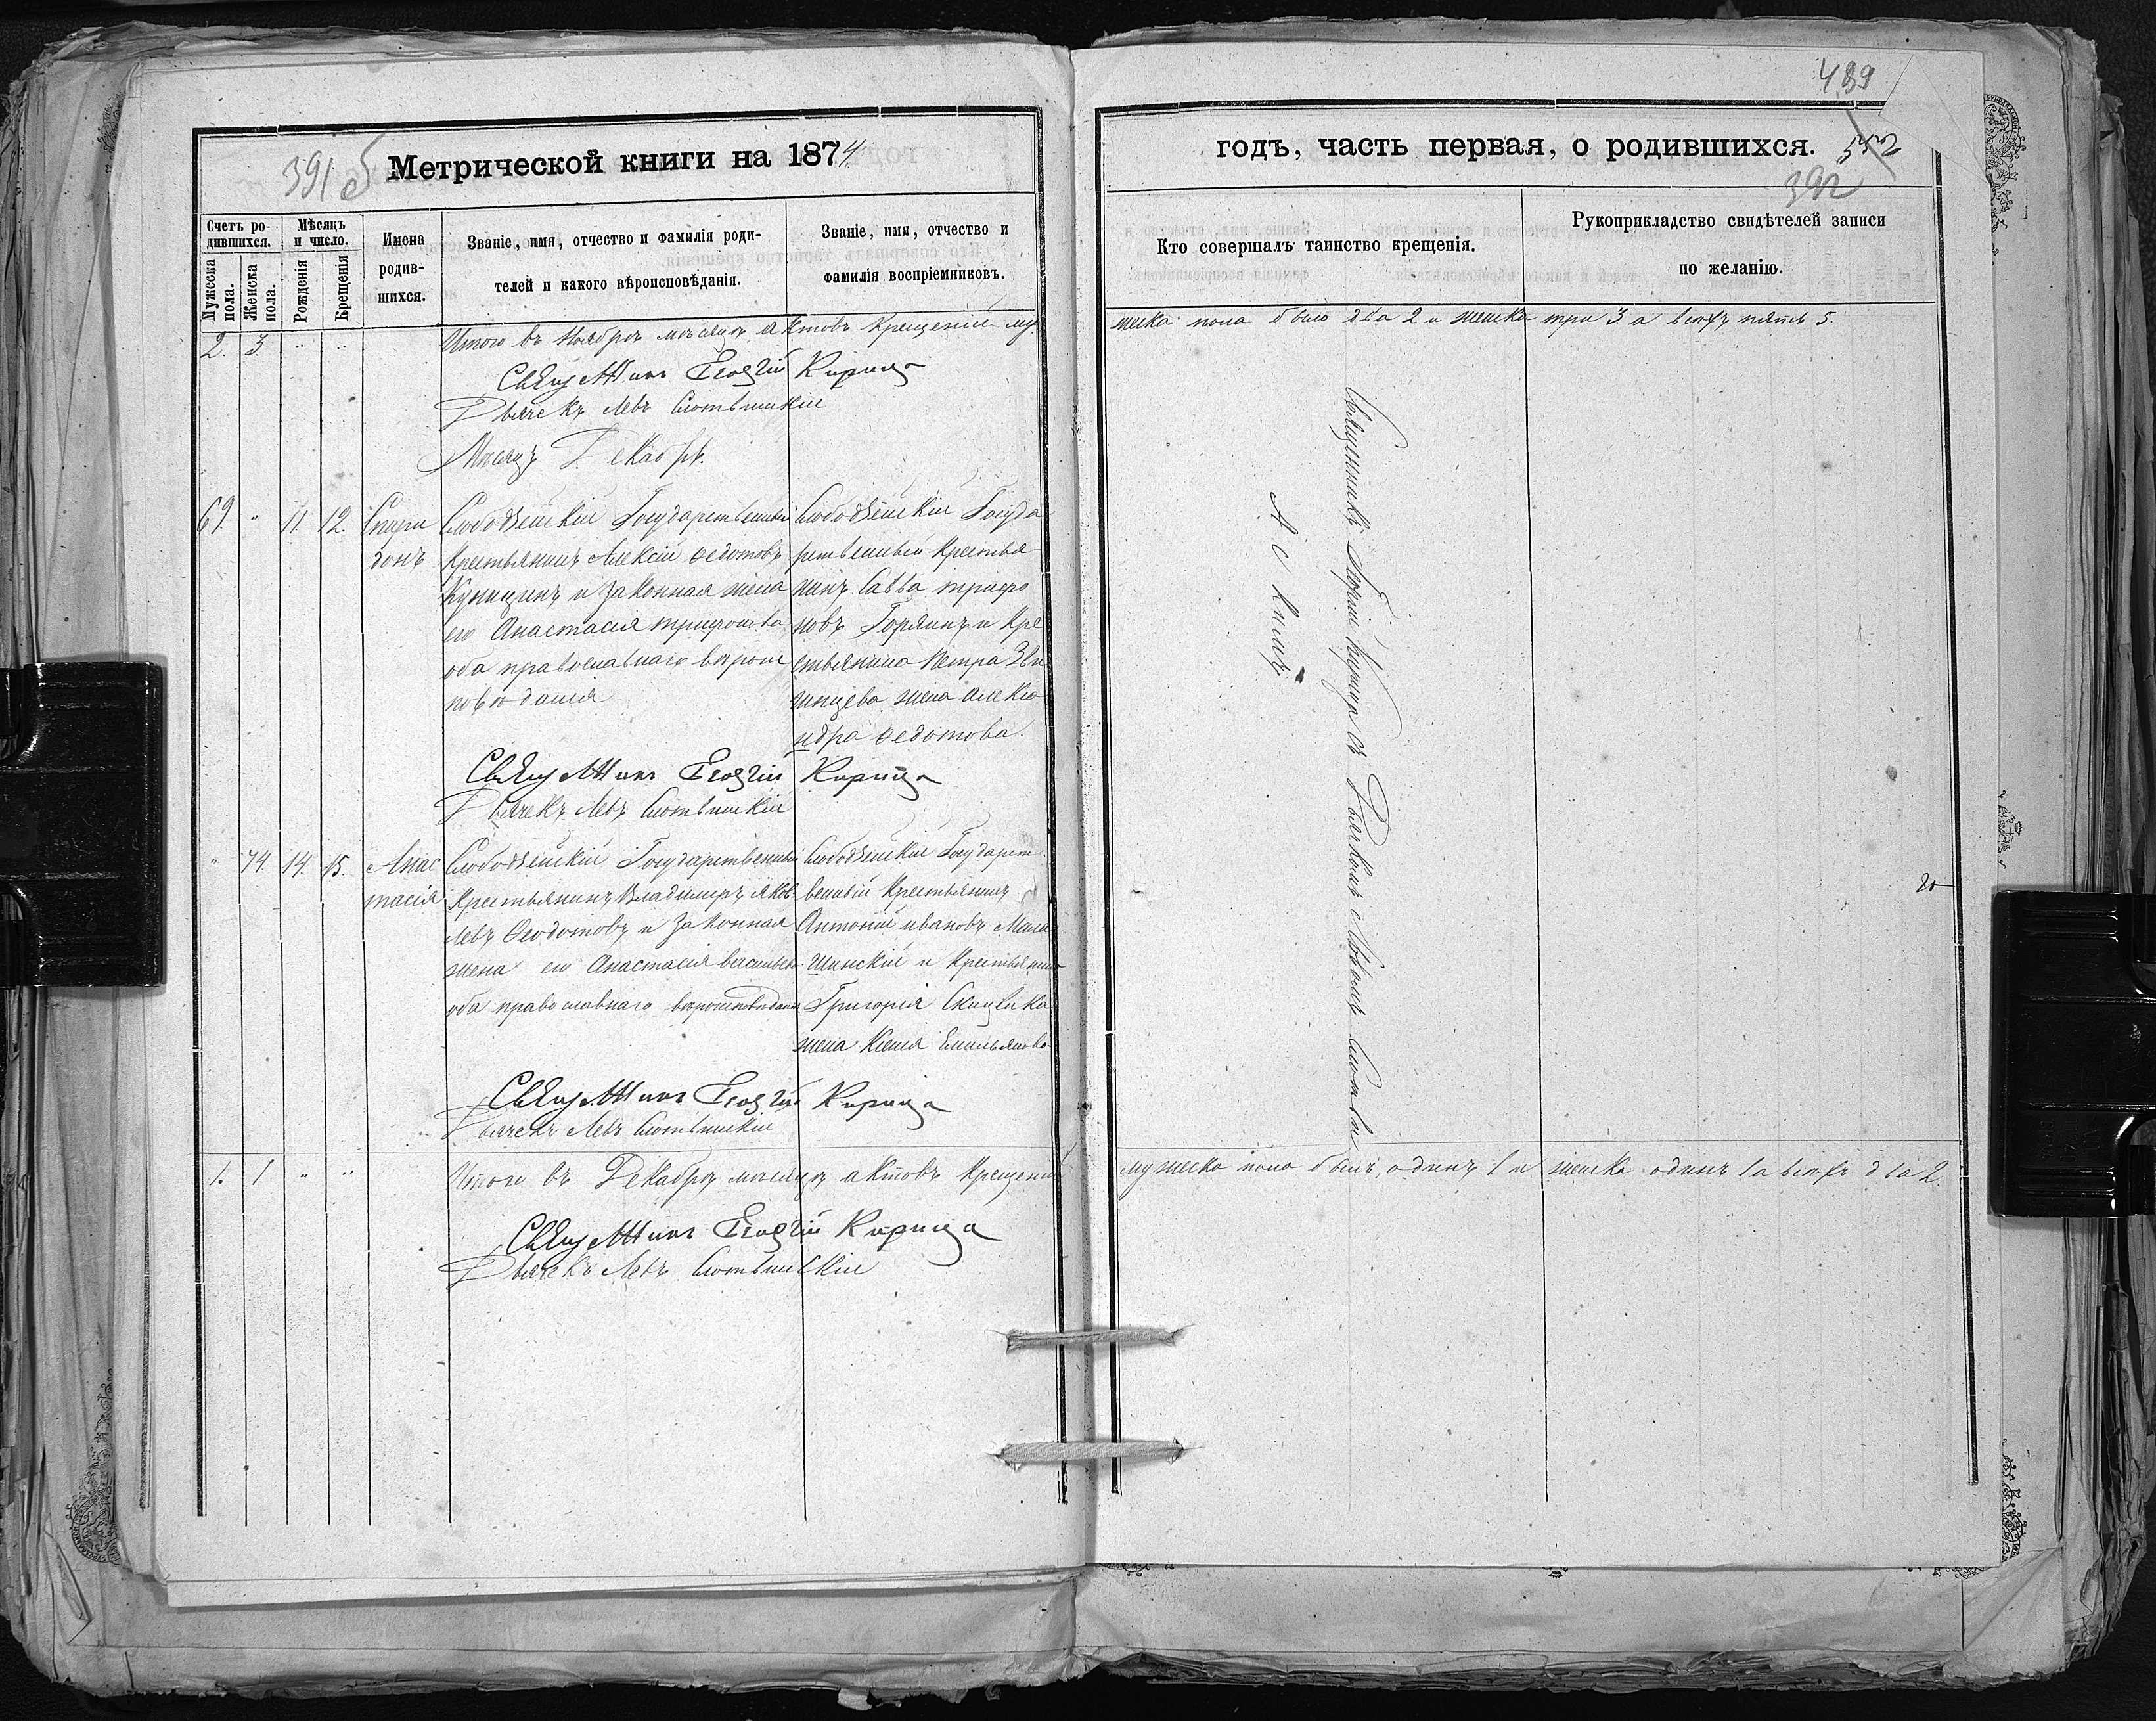 391 об
Метрической книги на 1874
Счетъ ро-
дившихся.
Мужеска
пола.
Женска
пола.
Мѣсяцъ
и число.
Рожденія
Крещенія
Имена
родив-
шихся.
Званіе, имя, отчество и фамилія роди-
телей и какого вѣроисповѣданія.
Званіе, имя, отчество и
фамилія воспріемниковъ.
2. 3. " " Итого въ Ноябрѣ мѣсяцѣ актовъ крещеній му
Священникъ Георгій Кирица
Дьячекъ Левъ
Мѣсяцъ Декабрь.
69. " 11. 12.
Спири
донъ
Слободзейскій Государственный
Крестьянинъ Алексій Ѳедотовъ
Куницинъ и законная жена
его Анастасія Трифонова
оба православнаго вѣроис
повѣданія
Слободзейскій Госуда
рственный крестья
нинъ Савва Трифо
новъ Горянъ и Кре
стьянина Петра
жена Алекса
ндра Ѳедотова.
Священникъ Георгій Кирица
Дьячекъ Левъ
" 74 14. 15.
Анас
тасія
Слободзейскій Государственный
Крестьянинъ Владимеръ Яков
левъ Ѳедотовъ и законная
жена его Анастасія Васильева
оба православнаго вѣроисповѣданія
Слободзейскій Государст
венный Крестьянинъ
Антоній Ивановъ
и Крестьянина
Григорія
жена Ксенія Емельянова
Священникъ Георгій Кирица
Дьячекъ Левъ
1. 1 " " Итого въ Декабрѣ мѣсяцѣ актовъ крещеній
Священникъ Георгій Кирица
Дьячекъ Левъ
439
годъ, часть первая, о родившихся.
552
392
Кто совершалъ таинство крещенія.
Рукоприкладство свидѣтелей записи
по желанію.
жеска пола было два 2 и женска три 3 а всѣхъ пять 5.
Священникъ Георгій Кирица съ Дьячкомъ Львомъ
мужеска пола былъ одинъ 1 и женска одинъ 1 а всѣхъ два 2.